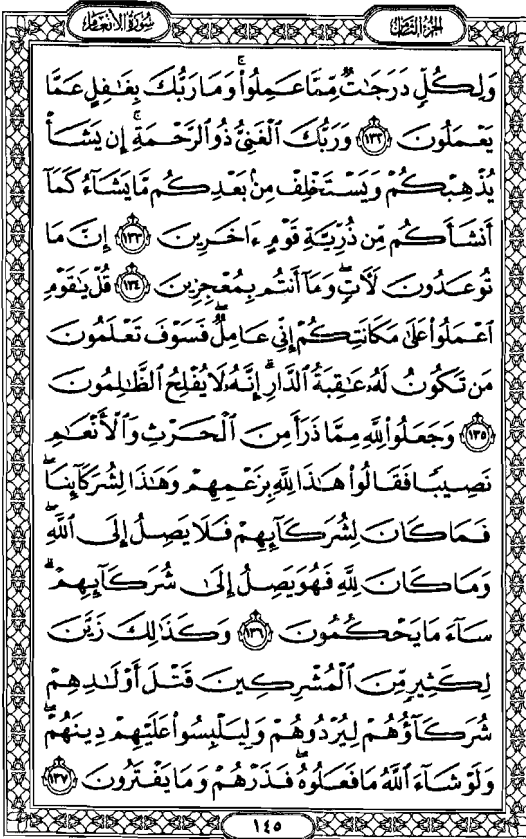 سُورَةُ الأَنْعَامِ
الجُزْءُ الثَّامِنُ
وَلِكُلٍّ دَرَجَٰتٌ مِّمَّا عَمِلُوا۟ ۚ وَمَا رَبُّكَ بِغَٰفِلٍ عَمَّا
يَعْمَلُونَ ١٣٢ وَرَبُّكَ ٱلْغَنِىُّ ذُو ٱلرَّحْمَةِ ۚ إِن يَشَأْ
يُذْهِبْكُمْ وَيَسْتَخْلِفْ مِنۢ بَعْدِكُم مَّا يَشَآءُ كَمَآ
أَنشَأَكُم مِّن ذُرِّيَّةِ قَوْمٍ ءَاخَرِينَ ١٣٣ إِنَّ مَا
تُوعَدُونَ لَءَاتٍ ۖ وَمَآ أَنتُم بِمُعْجِزِينَ ١٣٤ قُلْ يَٰقَوْمِ
ٱعْمَلُوا۟ عَلَىٰ مَكَانَتِكُمْ إِنِّى عَامِلٌ ۖ فَسَوْفَ تَعْلَمُونَ
مَن تَكُونُ لَهُۥ عَٰقِبَةُ ٱلدَّارِ ۗ إِنَّهُۥ لَا يُفْلِحُ ٱلظَّٰلِمُونَ
١٣٥ وَجَعَلُوا۟ لِلَّهِ مِمَّا ذَرَأَ مِنَ ٱلْحَرْثِ وَٱلْأَنْعَٰمِ
نَصِيبًا فَقَالُوا۟ هَٰذَا لِلَّهِ بِزَعْمِهِمْ وَهَٰذَا لِشُرَكَآئِنَا ۖ
فَمَا كَانَ لِشُرَكَآئِهِمْ فَلَا يَصِلُ إِلَى ٱللَّهِ ۖ
وَمَا كَانَ لِلَّهِ فَهُوَ يَصِلُ إِلَىٰ شُرَكَآئِهِمْ ۗ
سَآءَ مَا يَحْكُمُونَ ١٣٦ وَكَذَٰلِكَ زَيَّنَ
لِكَثِيرٍ مِّنَ ٱلْمُشْرِكِينَ قَتْلَ أَوْلَٰدِهِمْ
شُرَكَآؤُهُمْ لِيُرْدُوهُمْ وَلِيَلْبِسُوا۟ عَلَيْهِمْ دِينَهُمْ ۖ
وَلَوْ شَآءَ ٱللَّهُ مَا فَعَلُوهُ ۖ فَذَرْهُمْ وَمَا يَفْتَرُونَ ١٣٧
١٤٥